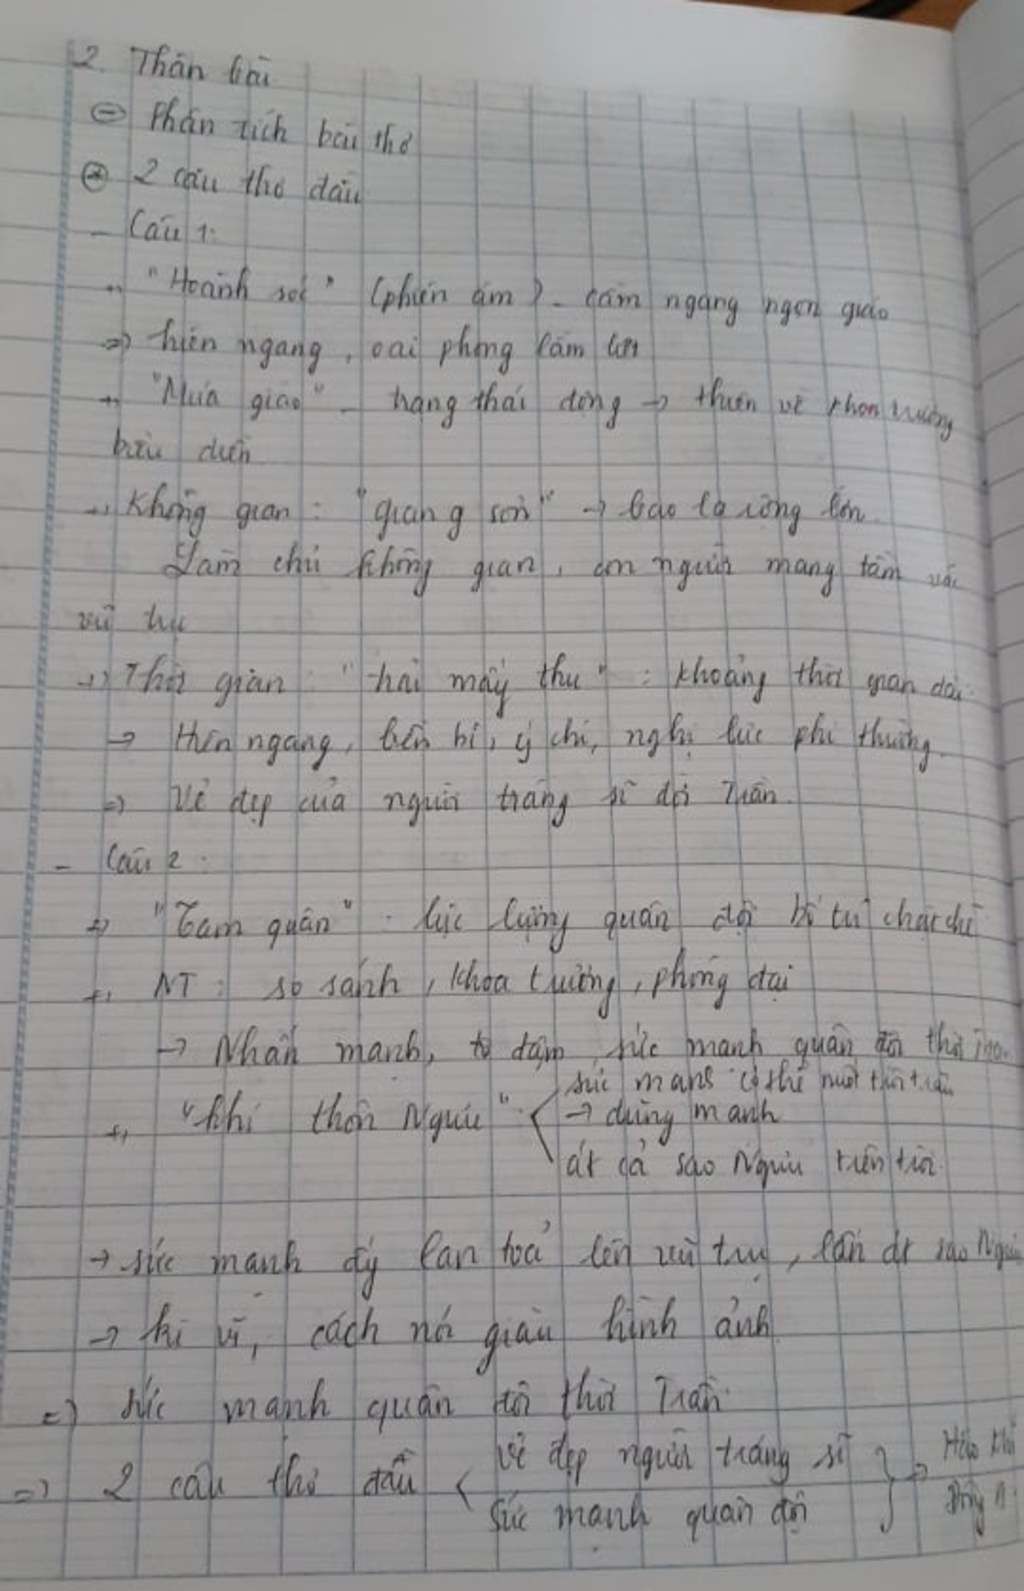 2. Thân bài
⊖ Phân tích bài thơ
⊛ 2 câu thơ đầu
- Câu 1:
+, "Hoành sóc" (phiên âm) - cầm ngang ngọn giáo
=> hiên ngang, oai phong lẫm liệt
+, "Múa giáo" - trạng thái động → thiên về khoa trương
biểu diễn
+, Không gian: "giang sơn" → bao la rộng lớn
Làm chủ không gian, con người mang tầm vóc
vũ trụ
+, Thời gian "trải mấy thu": khoảng thời gian dài
→ Hiên ngang, bền bỉ, ý chí, nghị lực phi thường
=> Vẻ đẹp của người tráng sĩ đời Trần
- Câu 2:
+, "Tam quân": lực lượng quân đội bố trí chặt chẽ
+, NT: so sánh, khoa trương, phóng đại
→ Nhấn mạnh, tô đậm sức mạnh quân đội thời Trần
+, "khí thôn Ngưu" < sức mạnh có thể nuốt trôi trâu
→ dũng mạnh
át cả sao Ngưu trên trời
→ sức mạnh ấy lan toả lên vũ trụ, lấn át sao Ngưu
→ kì vĩ, cách nói giàu hình ảnh
=> Sức mạnh quân đội thời Trần
=> 2 câu thơ đầu < Vẻ đẹp người tráng sĩ } → Hào khí
Sức mạnh quân đội Đông A